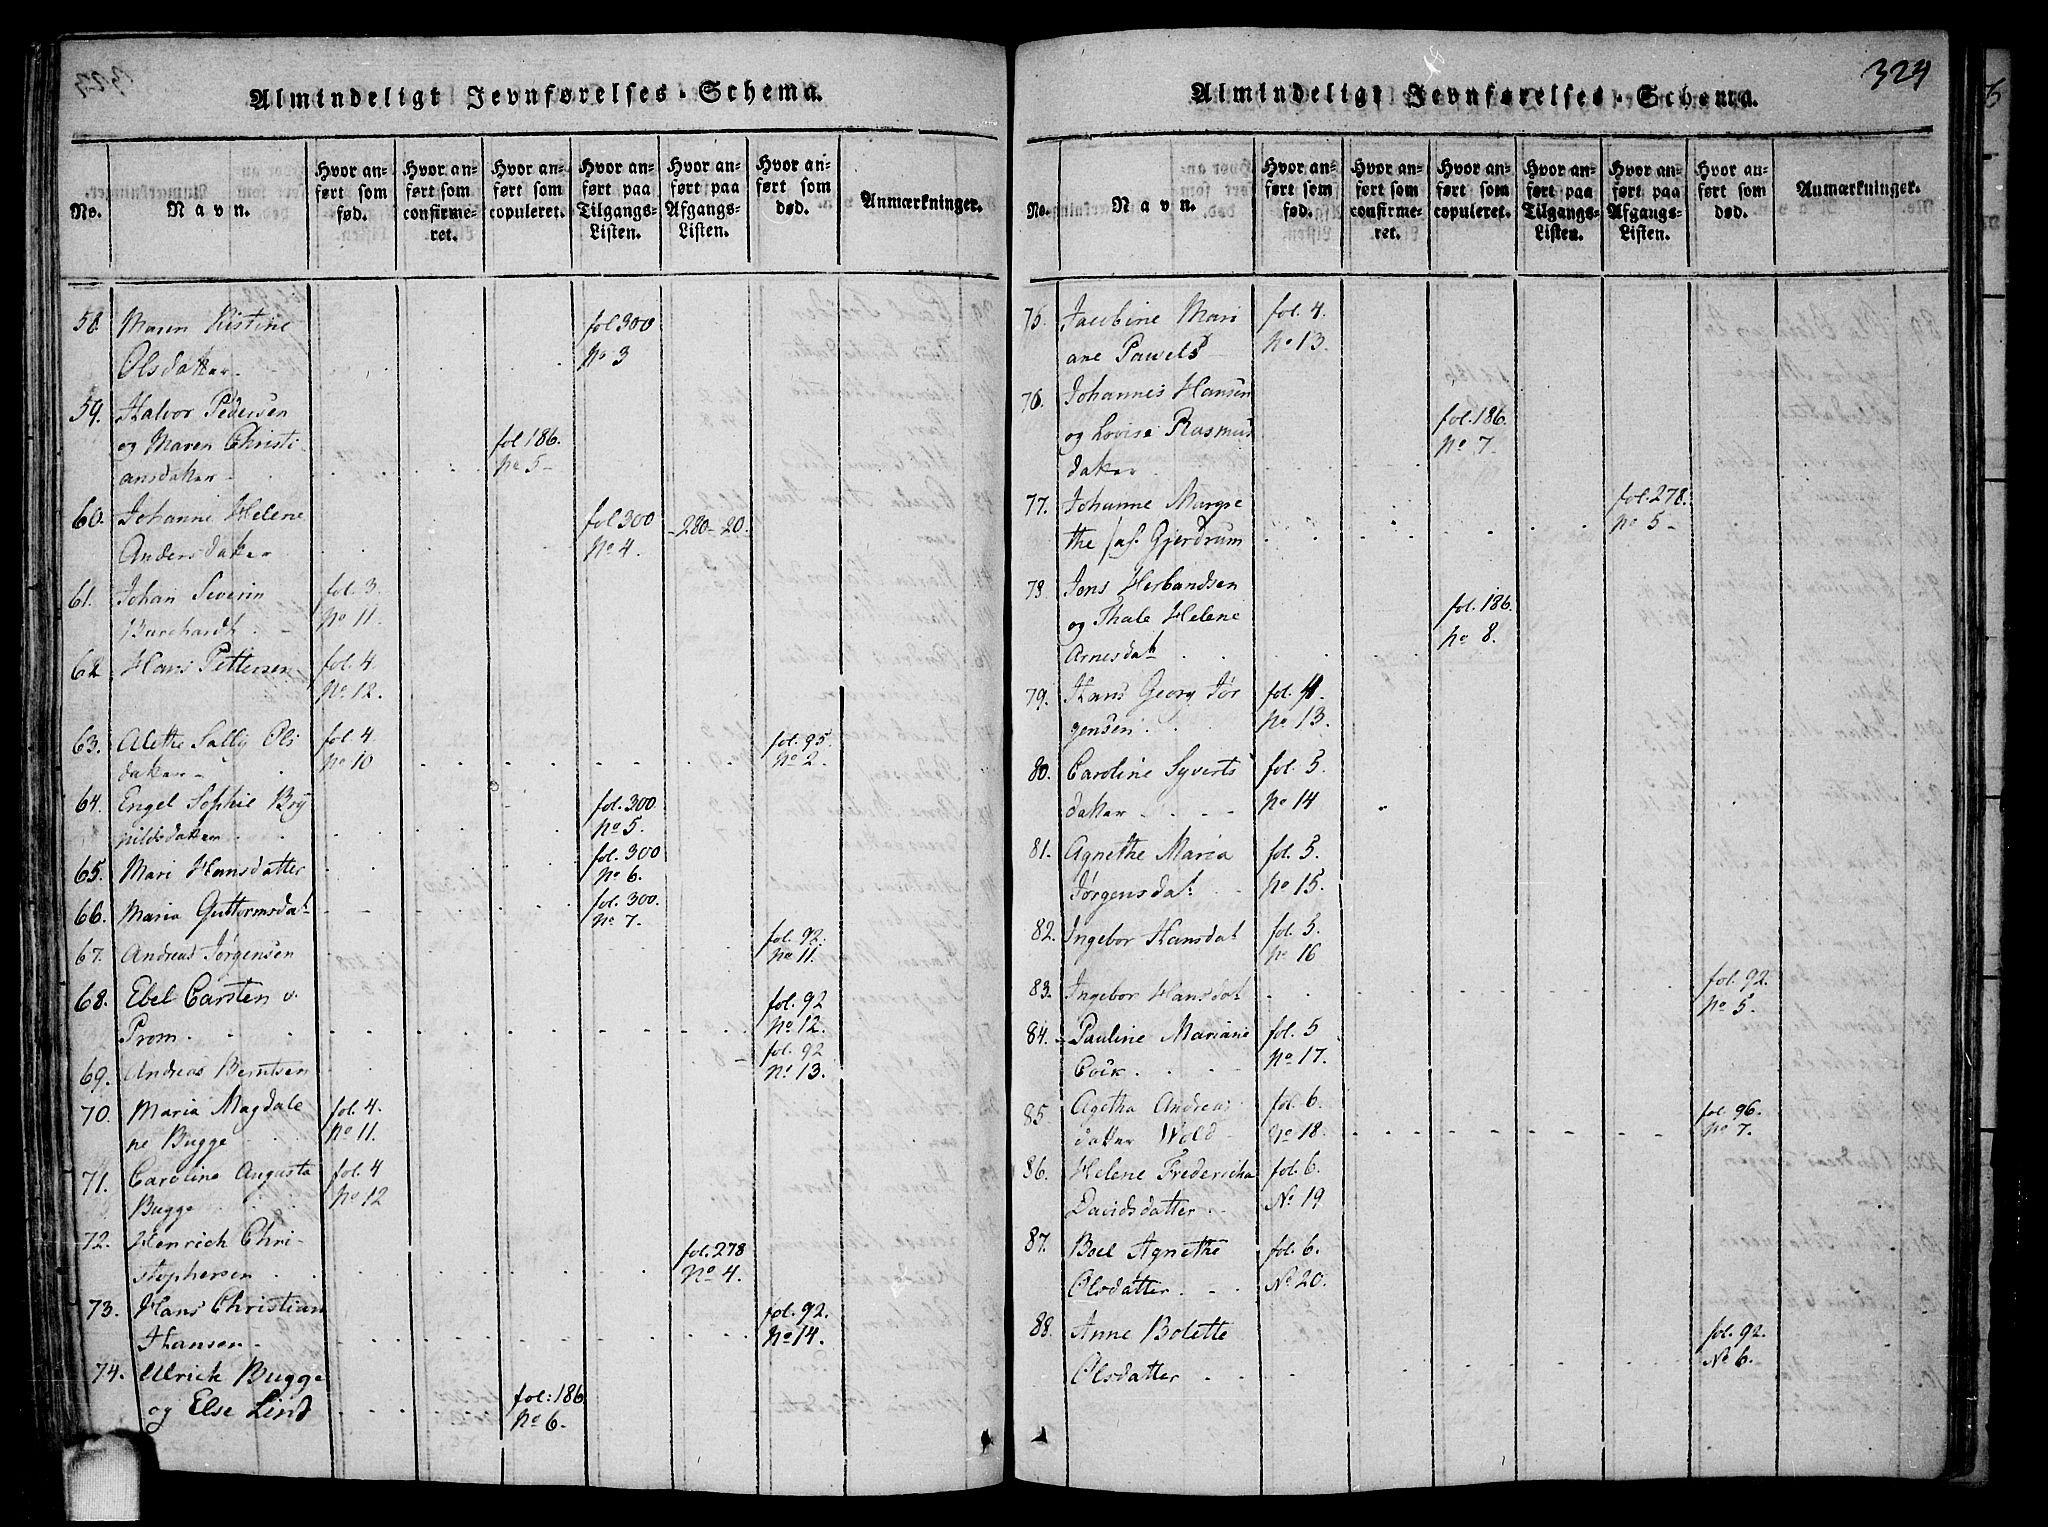 Almindeligt Jevnførelses-Schema.
No.
Navn.
Hvor anført som fød.
Hvor anført som confirmeret.
Hvor anført som copuleret.
Hvor anført paa Tilgangs-Listen.
Hvor anført paa Afgangs-Listen.
Hvor anført som død.
Anmærkninger.
58. Maren Kistine fol 300
Olsdatter No 3
59. Halvor Pedersen
og Maren Christi- fol 186.
ansdatter No 5
60. Johanne Helene fol 300 280-20.
Andersdatter No 4.
61. Johan Severin fol. 3.
Burchardt. No 11.
62 Hans Pettersen fol. 4
No 12.
63. Alethe Sally Ols fol. 4 fol. 95.
datter No 10 No 2.
64. Engel Sophie Bry fol. 300
nildsdatter No 5.
65. Mari Hansdatter fol. 300
No 6.
66. Maria Guttormsdat fol. 300.
No 7.
67. Andreas Jørgensen fol. 92.
No 11.
68. Ebel Carsten v. fol. 92
Prom. No 12.
69. Andreas Berntsen fol. 92
No 13.
70. Maria Magdale fol. 4.
ne Bugge No 11.
71. Caroline Augusta fol. 4
Bugge No 12
72. Henrich Chri- fol. 278
stophersen No 4.
73. Hans Christian fol. 92.
Hansen No 14.
74. Ulrich Bugge fol: 186
og Else Lind No 6.
324
Almindeligt Jevnførelses-Schema.
No.
Navn.
Hvor anført som fød.
Hvor anført som confirmeret.
Hvor anført som copuleret.
Hvor anført paa Tilgangs-Listen.
Hvor anført paa Afgangs-Listen.
Hvor anført som død.
Anmærkninger.
75. Jacobine Mari fol. 4.
ane Pawels No 13.
76. Johannes Hansen fol. 186.
og Lovise Rasmus No 7.
datter
77. Johanne Margre fol. 278.
the /af. Gjerdrum No 5
78. Jens Herbandsen
og Thale Helene fol. 186.
Arnesdat No 8.
79. Hans Georg Jør fol. 4.
gensen. No 13.
80. Caroline Syverts fol. 5.
datter No 14
81. Agnethe Maria fol. 5.
Jørgensdat. No 15.
82. Ingebor Hansdat fol. 5.
No 16
83. Ingebor Hansdat fol. 92.
No 5.
84. Pauline Mariane fol. 5
Cock. No 17.
85 Agetha Andreas fol. 6. fol. 96.
datter Wold No 18. No 7.
86. Helene Fredericha fol. 6.
Davidsdatter No 19
87. Boel Agnethe fol. 6.
Olsdatter No 20.
88. Anne Bolette fol. 92.
Olsdatter No 6.